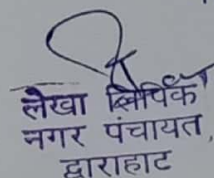 लेखा लिपिक
नगर पंचायत,
द्वाराहाट